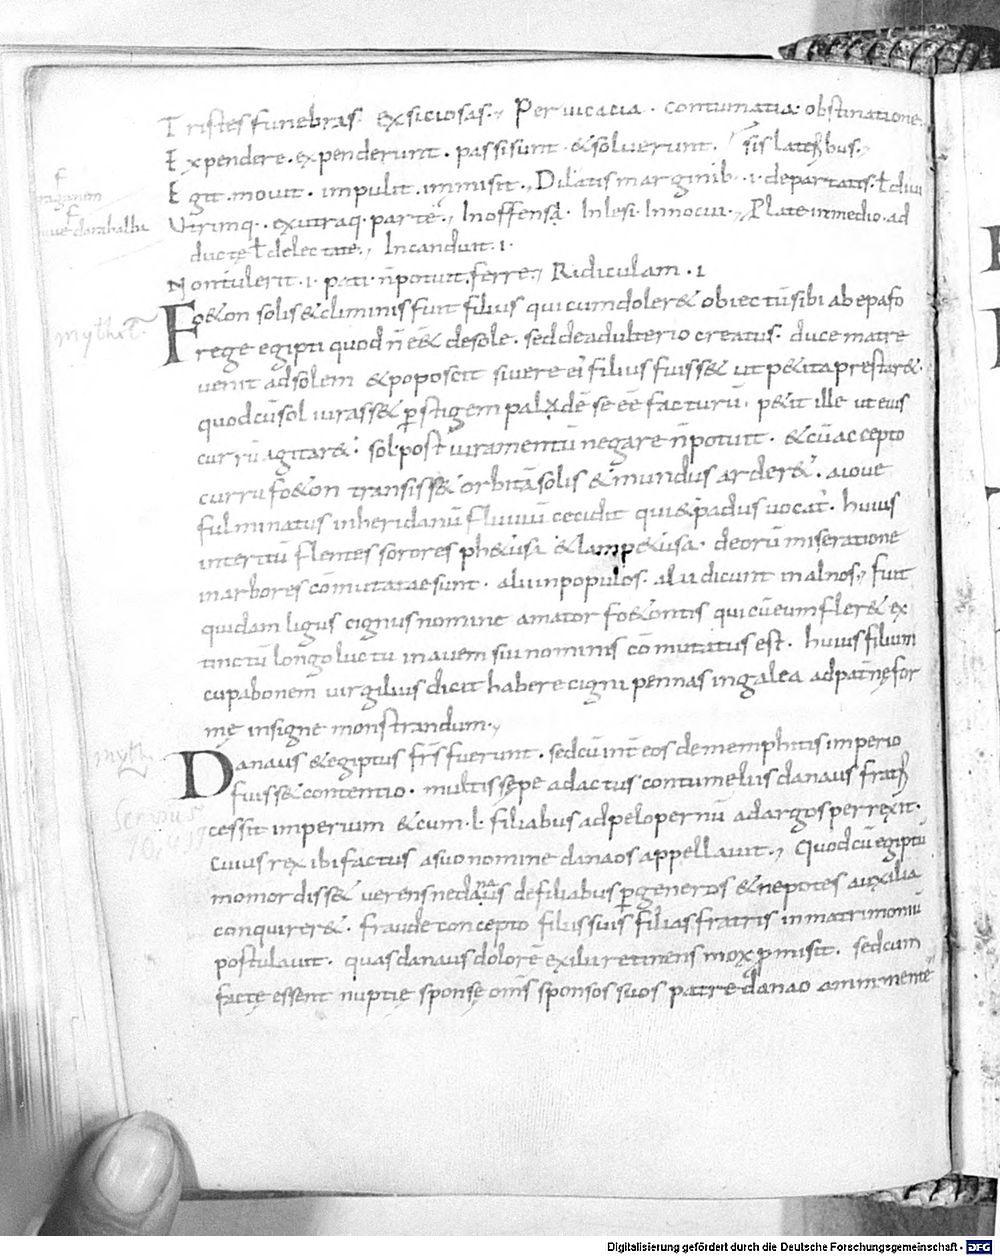 Tristes funebras. exsiciosas., Peruicacia. contumatia. obstinatione.
Expendere. expenderunt. passi sunt & soluerunt. sis lateribus.,
Egit. mouit. impulit. immisit., Dilatis marginib. .i. departatis. ł
Utrimq. exutraq. parte., Inoffensą. Inlesi. Innocui., Plate inmedio. ad
ductę ł delectate., Incanduit .i.
Non tulerit .i. pati n̄ potuit. ferre., Ridiculam .i
Fo&on solis & climinis fuit filius qui cum doler& obiectū sibi ab epafo
rege egipti quod n̄ e&̄ de sole. sed de adulterio creatus. duce matre
uenit ad solem & poposcit si uere ei filius fuiss& ut p&ita prestar&.
quod cū sol iurass& p̱ stigem paludē se eē facturū. p&iit ille ut eius
currū agitar&. sol post iuramentū negare n̄ potuit. & cū accepto
curru fo&on transiss& orbitā solis & mundus arder&. a ioue
fulminatus in heridanū fluuiū cecidit qui & padus uocat̄. huius
interitū flentes sorores ph&usa & lamp&usa. deorū miseratione
in arbores cōmutatae sunt. alii in populos. alii dicunt in alnos., fuit
quidam ligus cignus nomine amator fo&ontis qui cū eum fler& ex
tinctū longo luctu in auem sui nominis cōmutatus est. huius filium
cupabonem uirgilius dicit habere cigni pennas in galea ad patnę for
mę insigne monstrandum.,
Danaus & egiptus frs̄ fuerunt. sed cū int̄ eos de memphitis imperio
fuiss& contentio. multis sępe adactus contumeliis danaus frat̄
cessit imperium & cum .l. filiabus ad pelopernū ad argos perrexit.
cuius rex ibi factus a suo nomine danaos appellauit., Quod cū egiptū
momordiss& uerens ne danaus de filiabus p̱ generos & nepotes auxilia
conquirer&. fraude concepto filiis suis filias fratris in matrimoniū
postulauit. quas danaus dolorē exilii retinens mox p̱misit. sed cum
factę essent nuptię sponsę om̄s sponsos suos patre danao ammmente
myth
myth
Seruius
10, 497